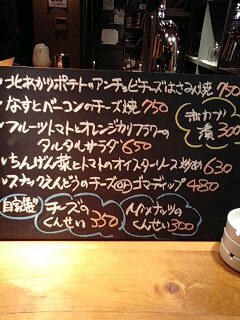 ・北あかりポテトのアンチョビチーズはさみ焼 750
・なすとベーコンのチーズ焼 750
・フルーツトマトとオレンジカリフラワーの
タルタルサラダ 650
・ちんげん菜とトマトのオイスターソース炒め 630
・スナックえんどうのチーズ ゴマディップ 480
赤カブ
漬 300
自家製
チーズの
くんせい 350
Mixナッツの
くんせい 300